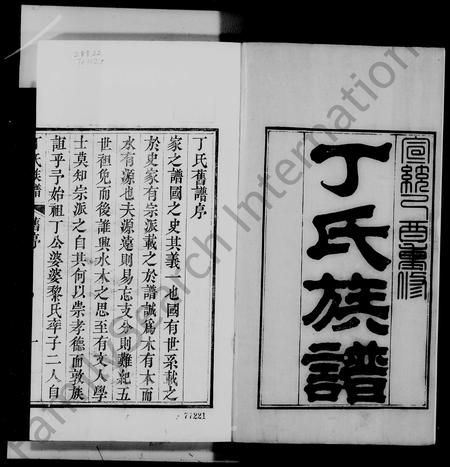 宣統己酉重修
丁氏族譜
丁氏舊譜序
家之譜國之史其義一也國有世系載之
於史家有宗派載之於譜誠為木有本而
水有源也夫源遠則易忘支分則難紀五
世祖免而後誰興水木之思至有文人學
士莫知宗派之自其何以崇孝德而敦族
誼乎予始祖丁公婆婆黎氏率子二人自
丁氏族譜 舊序 一
77221
FamilySearch International